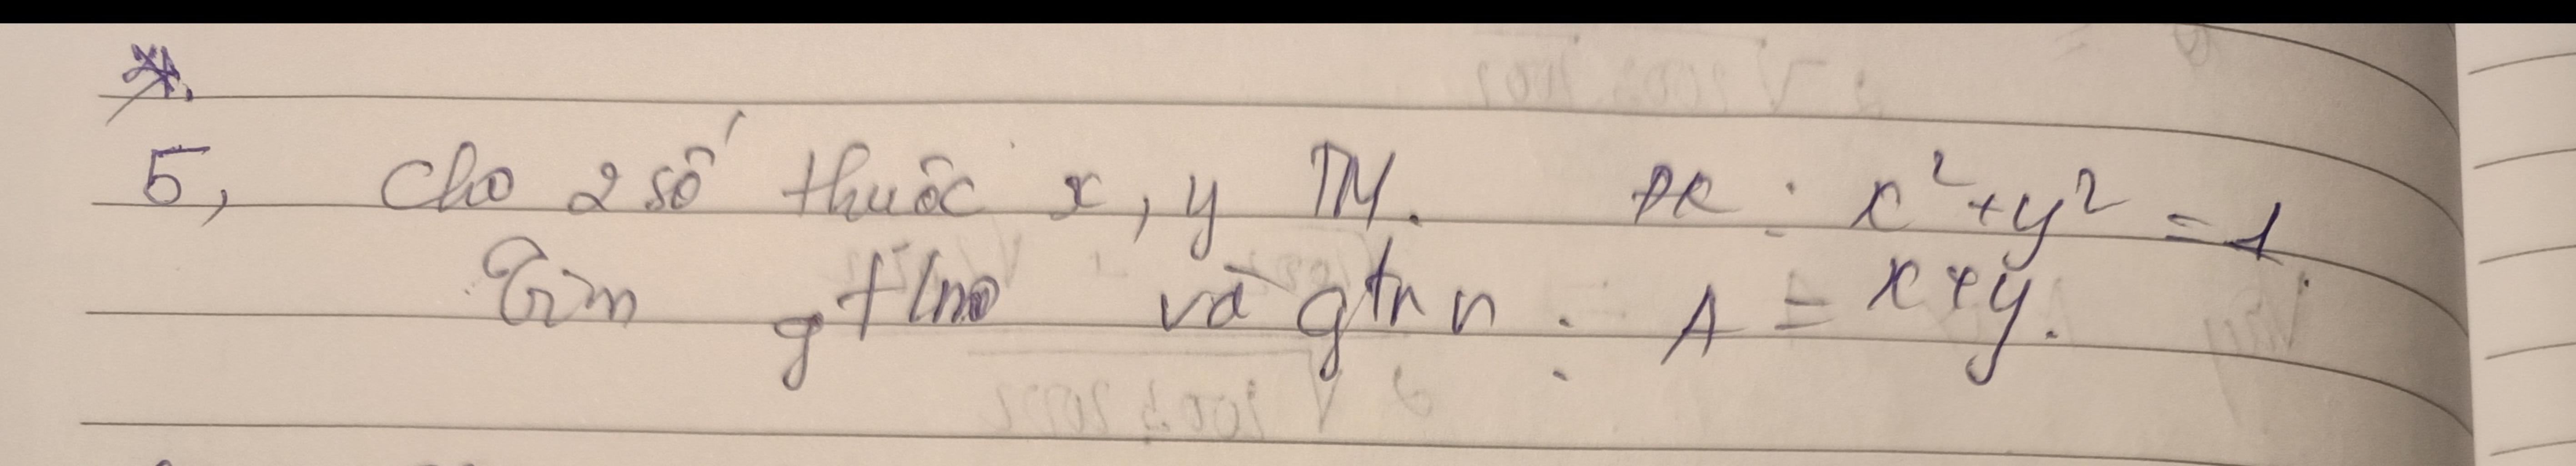 5, Cho 2 số thuôc x, y TM. ĐK : x² + y² = 1.
Tìm gtln và gtnn : A = x + y.